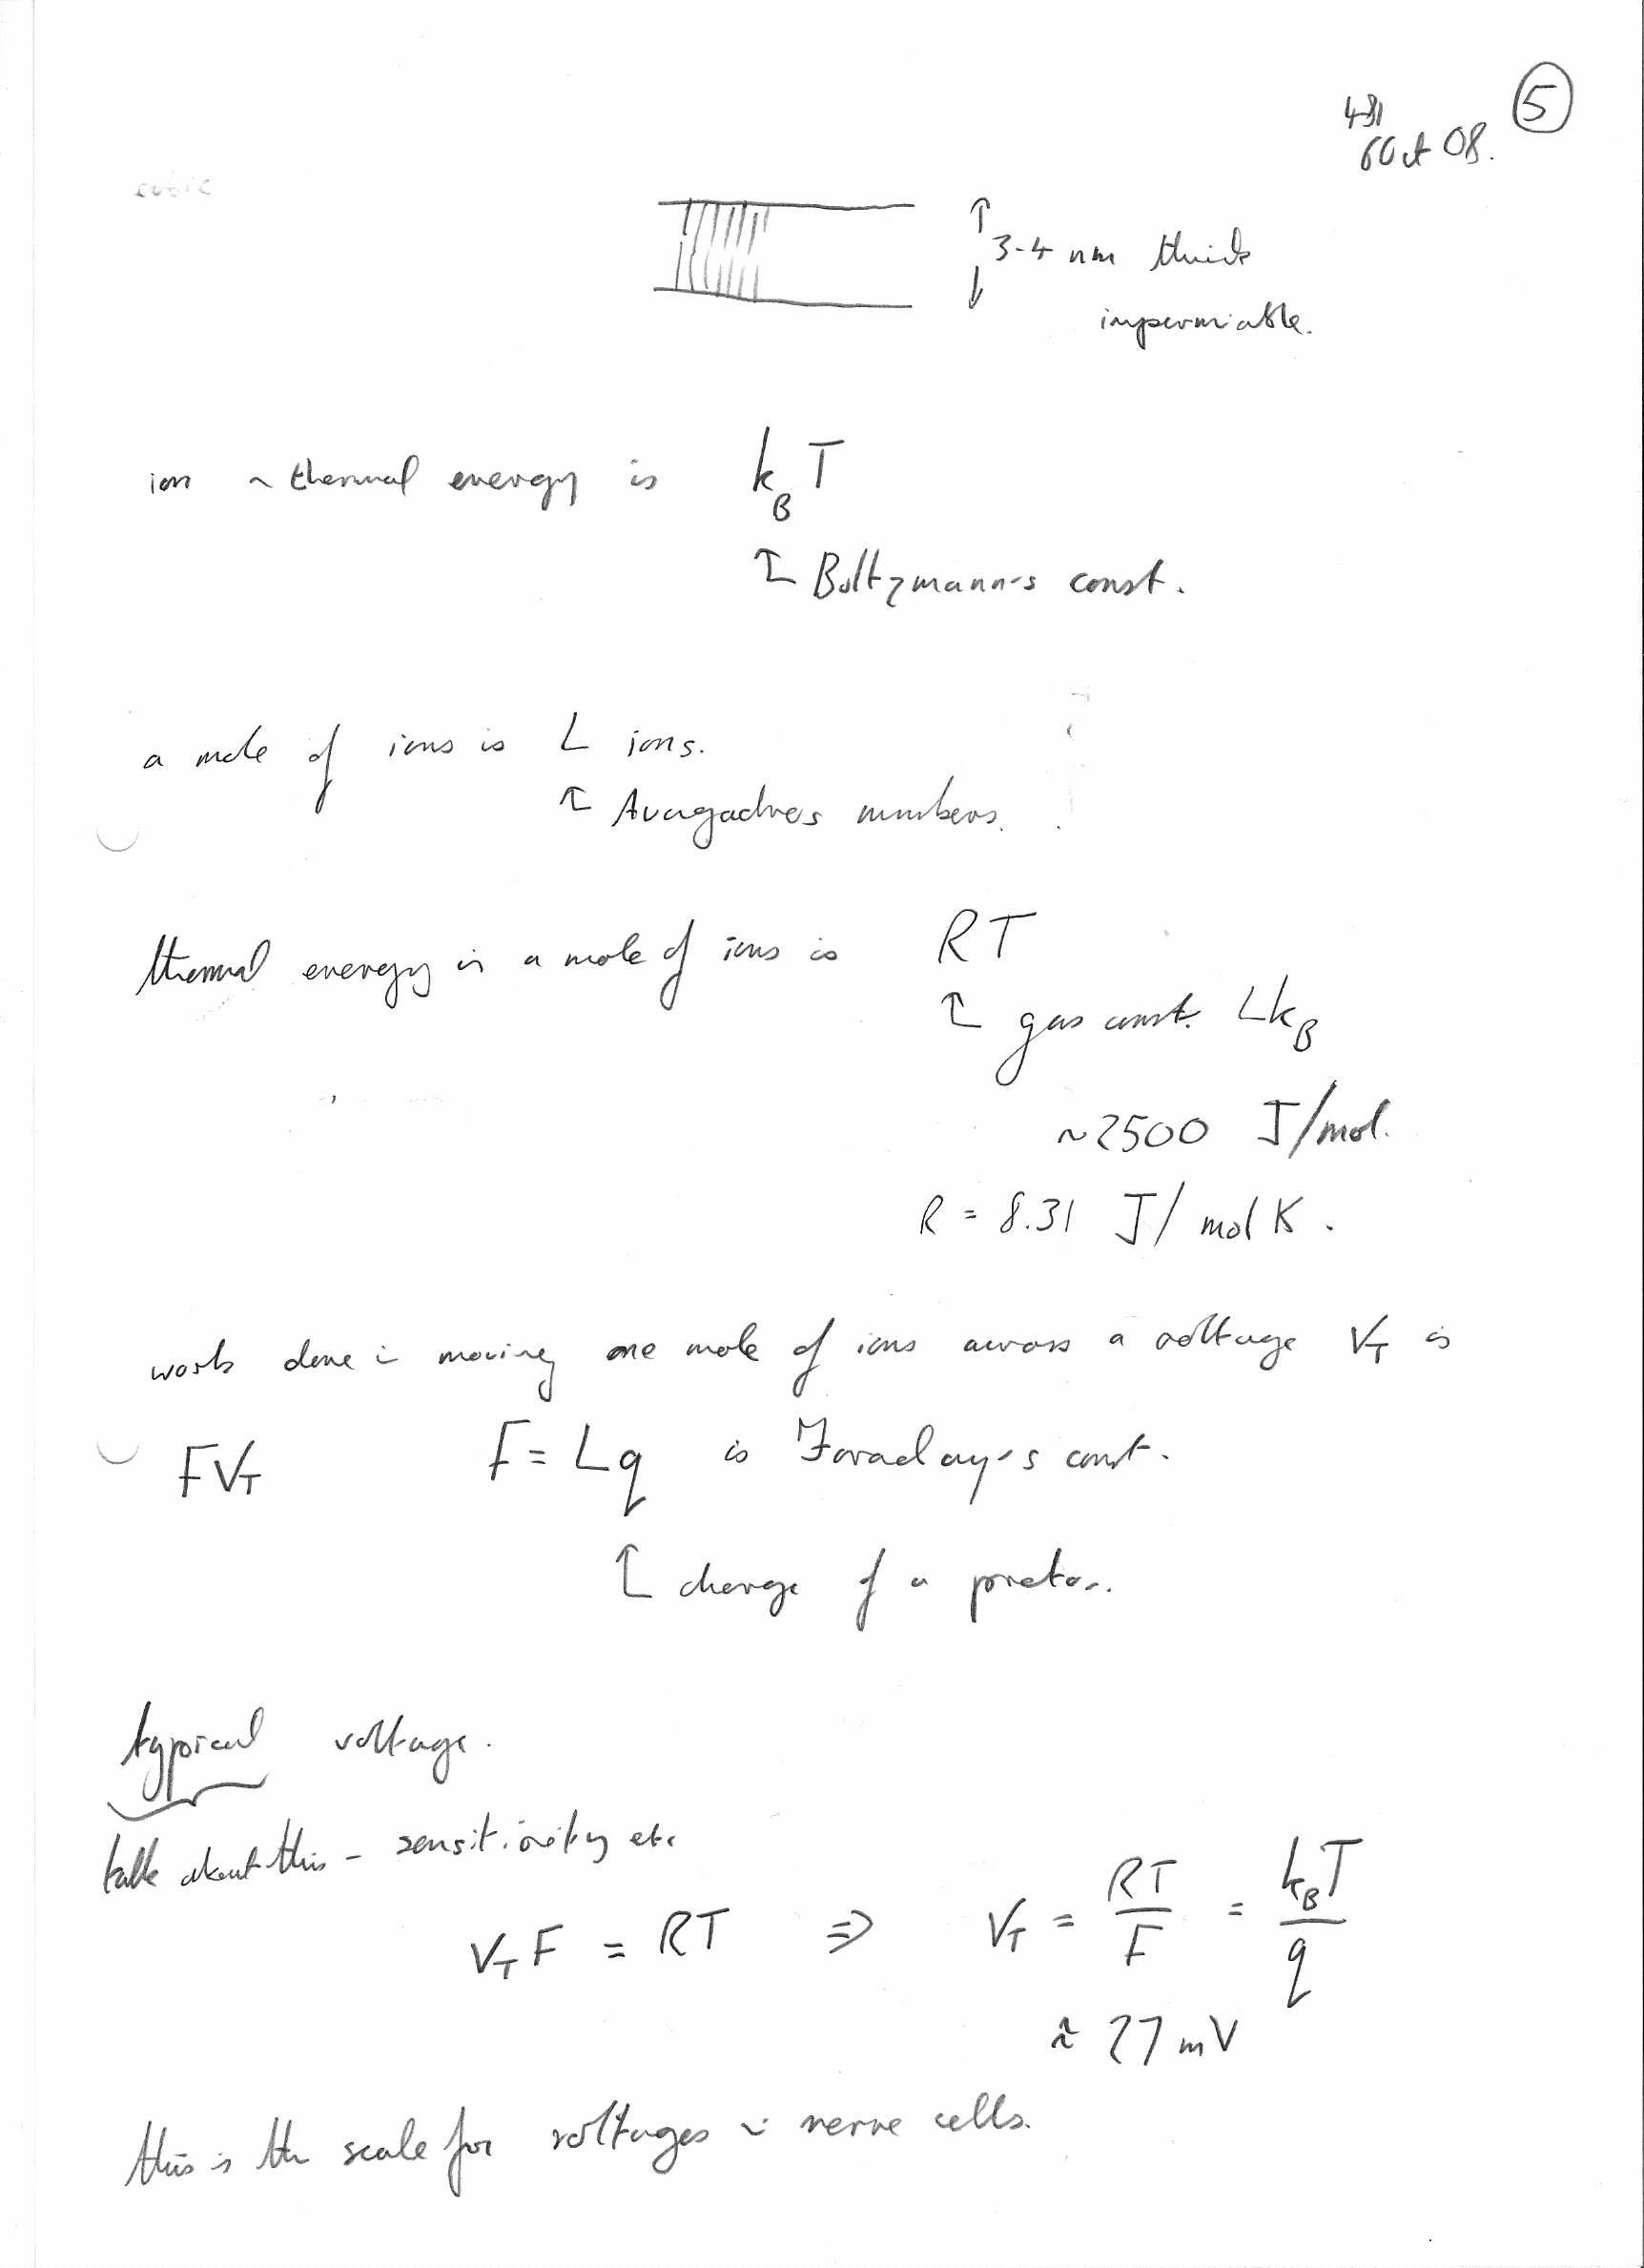 5
481
6 Oct 08.
cubic
3-4 nm thick
impermiable.
ion ~ thermal energy is k_B T
↑ Boltzmann's const.
a mole of ions is L ions.
↑ Avagadro's numbers.
thermal energy in a mole of ions is RT
↑ gas const. Lk_B
~2500 J/mol.
R = 8.31 J/mol K.
work done in moving one mole of ions across a voltage V_T is
FV_T F = Lq is Faraday's const.
↑ charge of a proton.
typical voltage.
talk about this - sensitivity etc
V_T F = RT ⇒ V_T = RT/F = k_B T/q
≈ 27 mV
this is the scale for voltages in nerve cells.